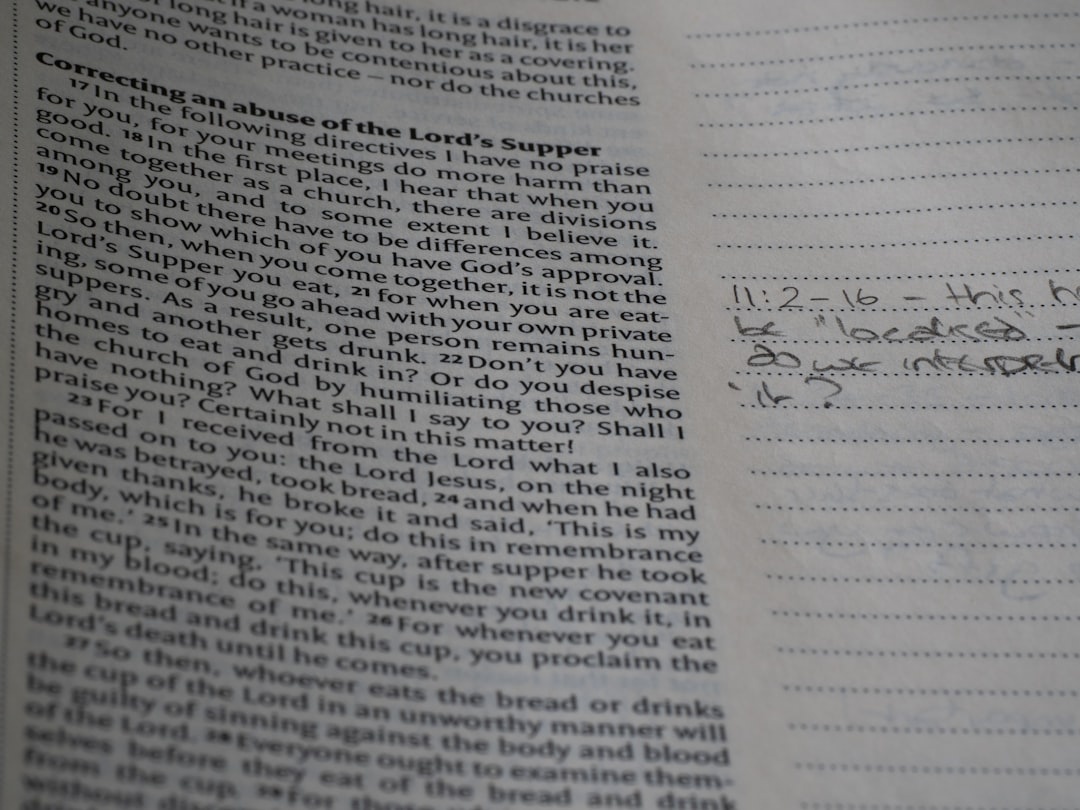 long hair, it is a disgrace to
if a woman has long hair, it is her
long hair is given to her as a covering.
anyone wants to be contentious about this,
we have no other practice – nor do the churches
of God.
Correcting an abuse of the Lord's Supper
17 In the following directives I have no praise
for you, for your meetings do more harm than
good. 18 In the first place, I hear that when you
come together as a church, there are divisions
among you, and to some extent I believe it.
19 No doubt there have to be differences among
you to show which of you have God's approval.
20 So then, when you come together, it is not the
Lord's Supper you eat, 21 for when you are eat-
ing, some of you go ahead with your own private
suppers. As a result, one person remains hun-
gry and another gets drunk. 22 Don't you have
homes to eat and drink in? Or do you despise
the church of God by humiliating those who
have nothing? What shall I say to you? Shall I
praise you? Certainly not in this matter!
23 For I received from the Lord what I also
passed on to you: the Lord Jesus, on the night
he was betrayed, took bread, 24 and when he had
given thanks, he broke it and said, 'This is my
body, which is for you; do this in remembrance
of me.' 25 In the same way, after supper he took
the cup, saying, 'This cup is the new covenant
in my blood; do this, whenever you drink it, in
remembrance of me.' 26 For whenever you eat
this bread and drink this cup, you proclaim the
Lord's death until he comes.
27 So then, whoever eats the bread or drinks
the cup of the Lord in an unworthy manner will
be guilty of sinning against the body and blood
of the Lord. 28 Everyone ought to examine them-
selves before they eat of the bread and drink
from the cup. 29 For those
without
11:2-16 - this
be "localised" -
do we
it?